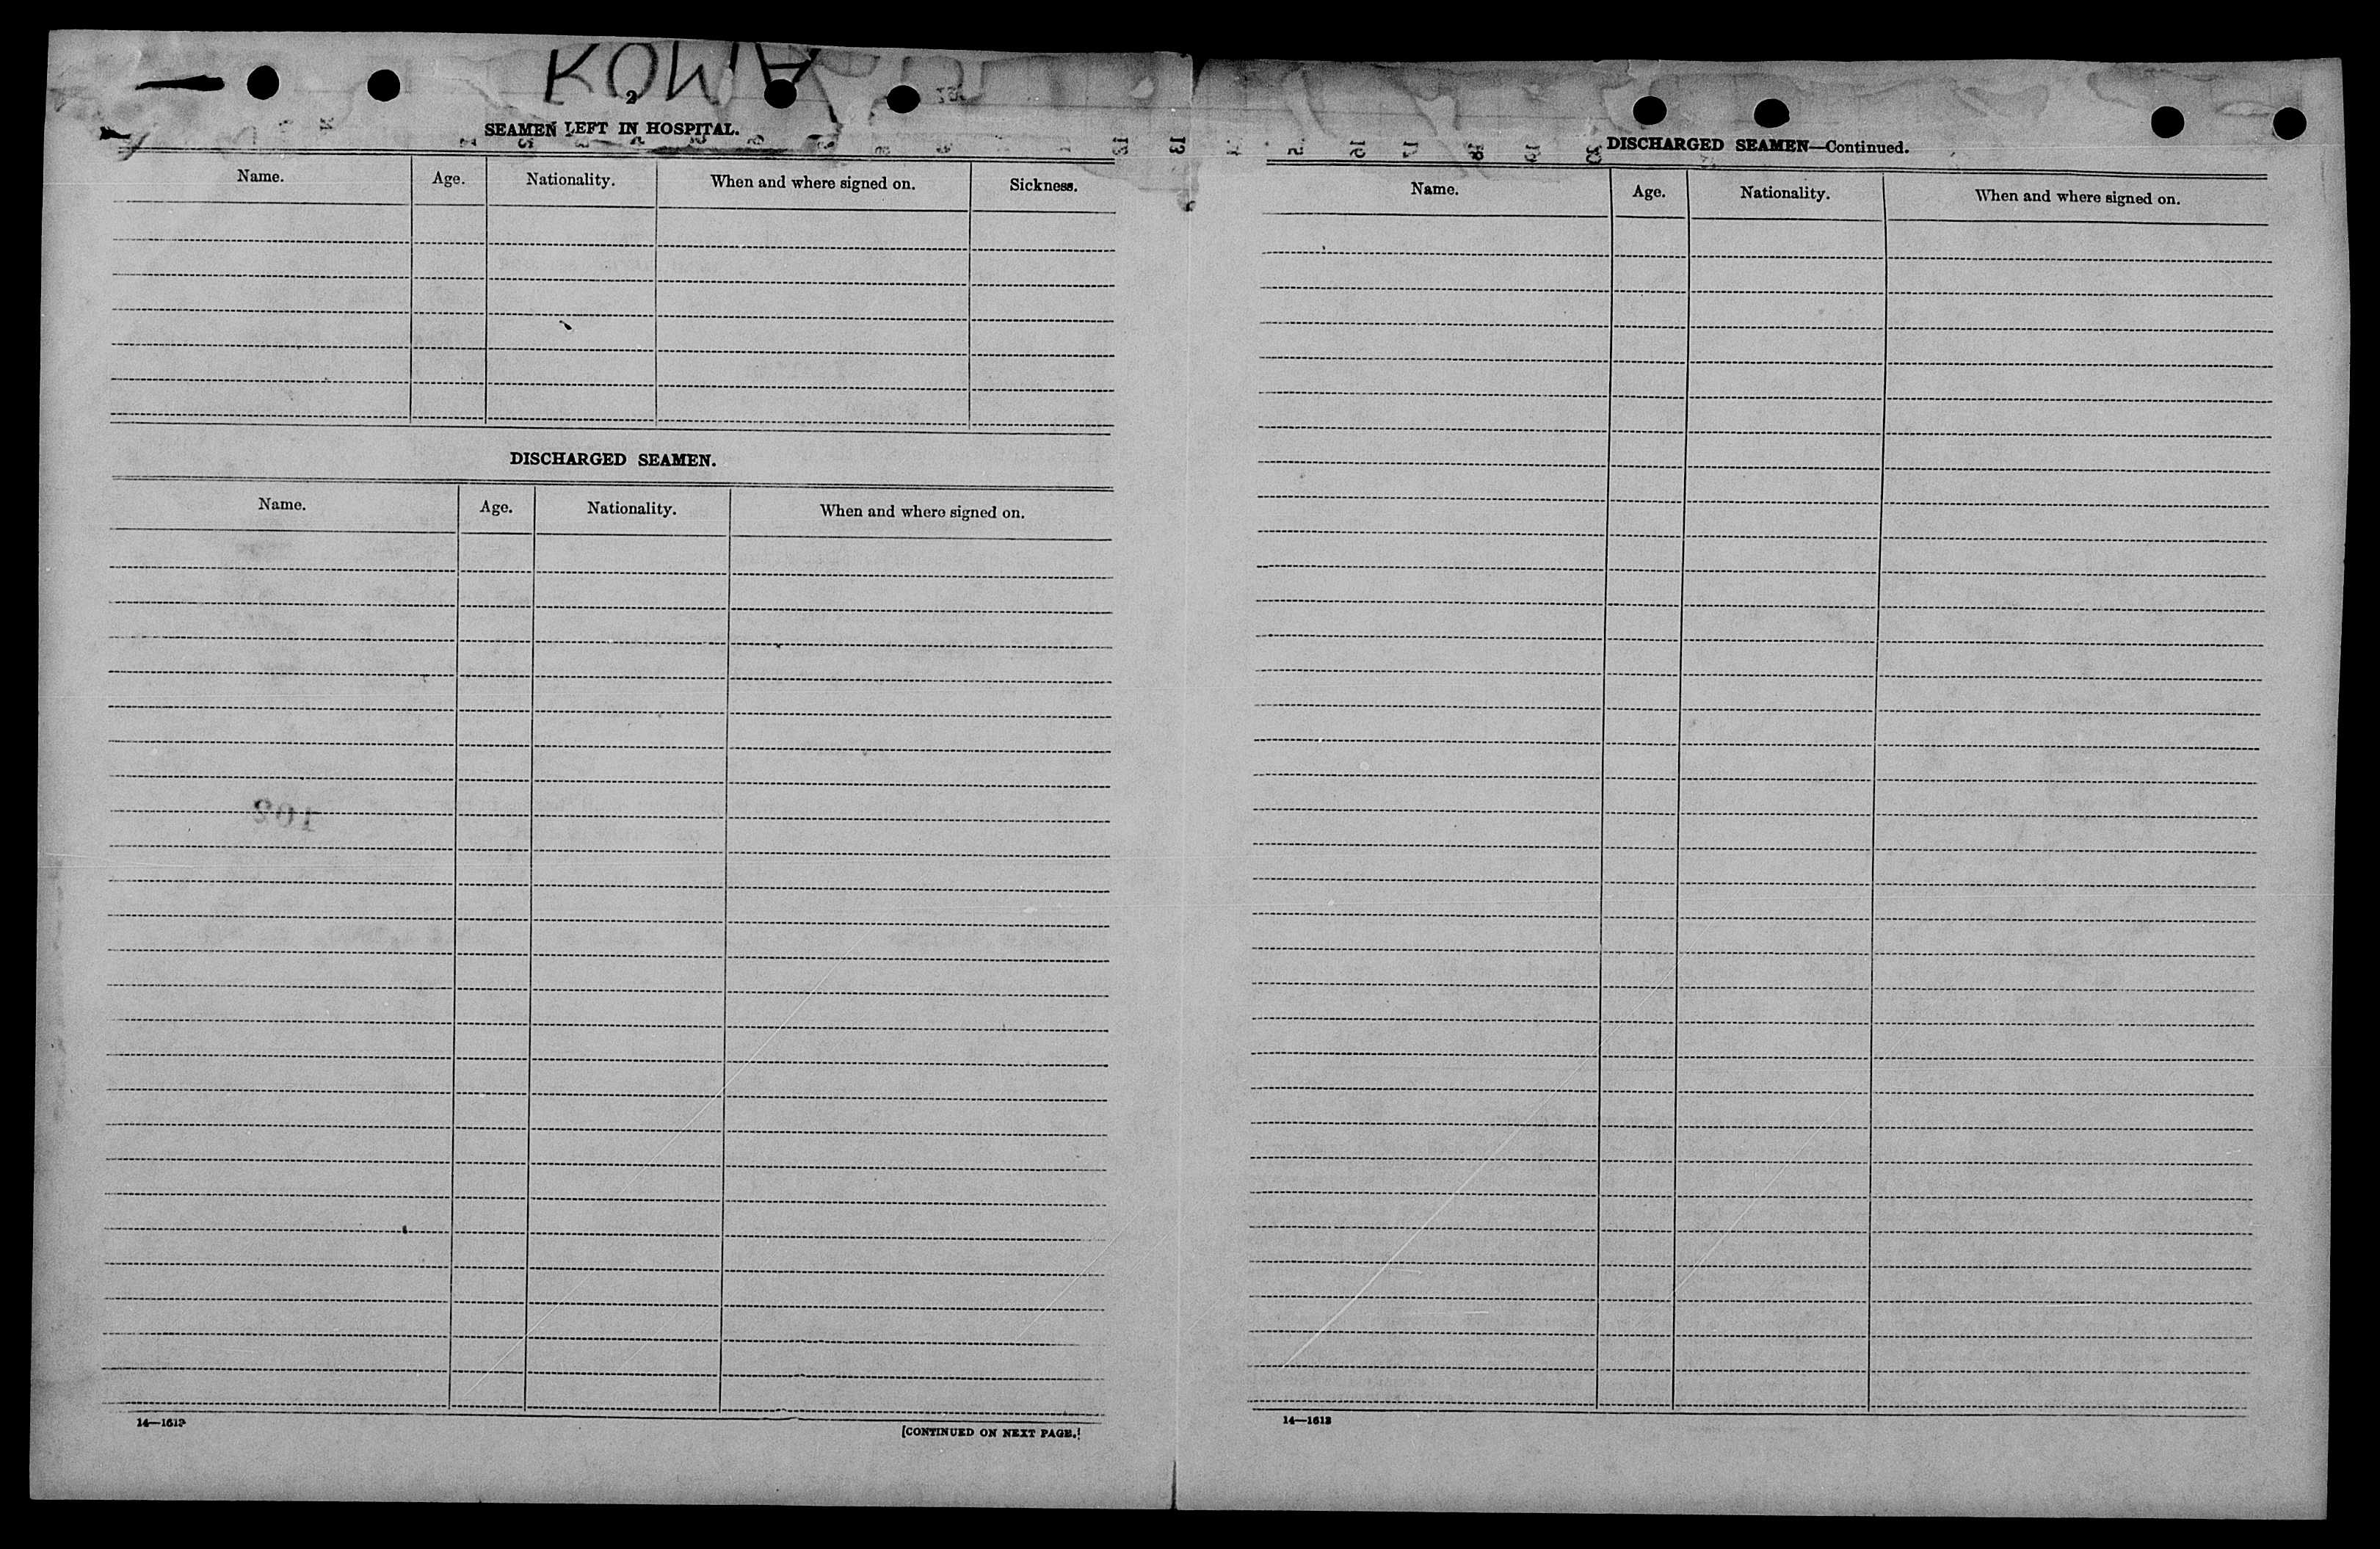 KOWA
2
SEAMEN LEFT IN HOSPITAL.
Name. Age. Nationality. When and where signed on. Sickness.
DISCHARGED SEAMEN.
Name. Age. Nationality. When and where signed on.
14—1613
[CONTINUED ON NEXT PAGE.]
DISCHARGED SEAMEN—Continued.
Name. Age. Nationality. When and where signed on.
14—1613